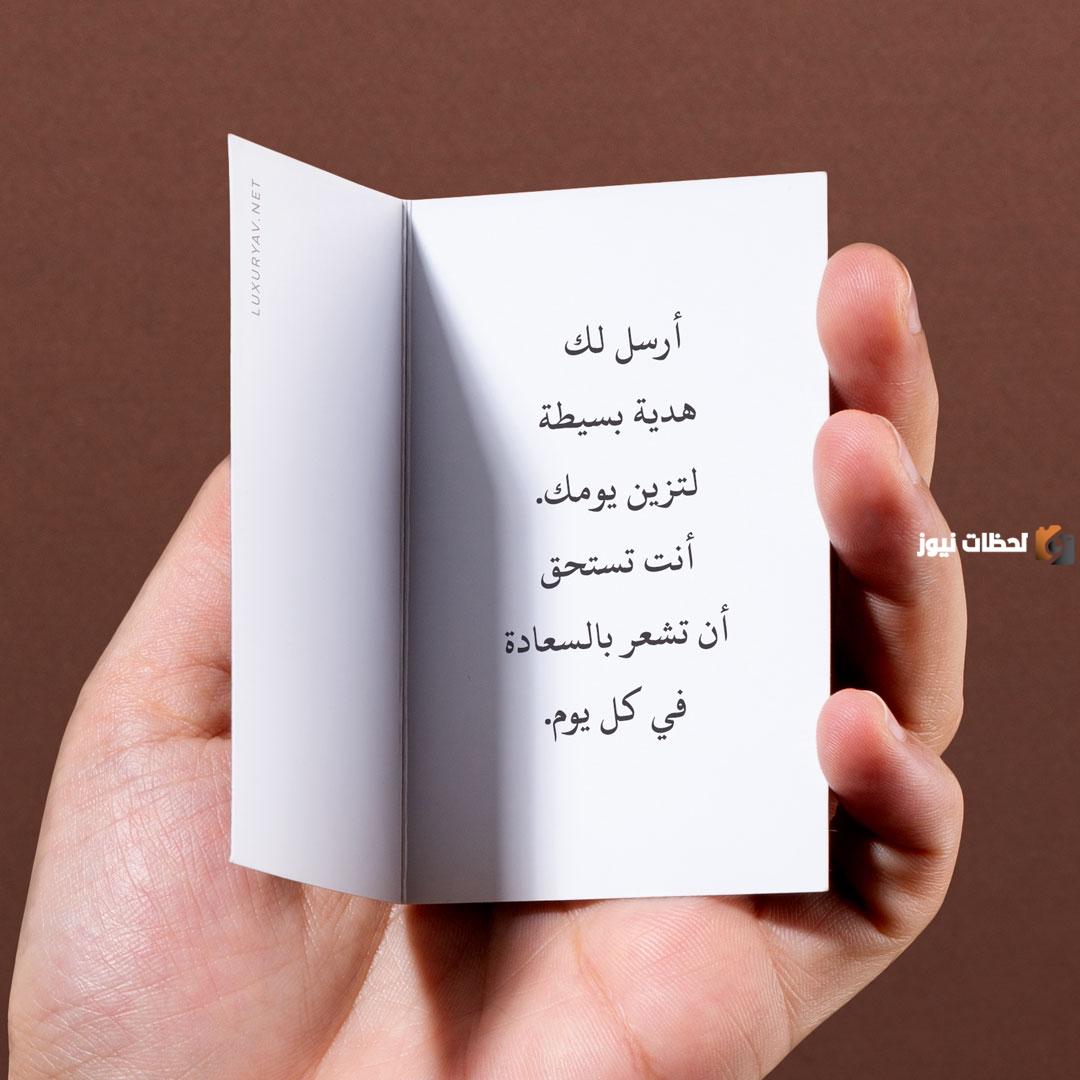 LUXURYAV.NET
أرسل لك
هدية بسيطة
لتزين يومك.
أنت تستحق
أن تشعر بالسعادة
في كل يوم.
لحظات نيوز